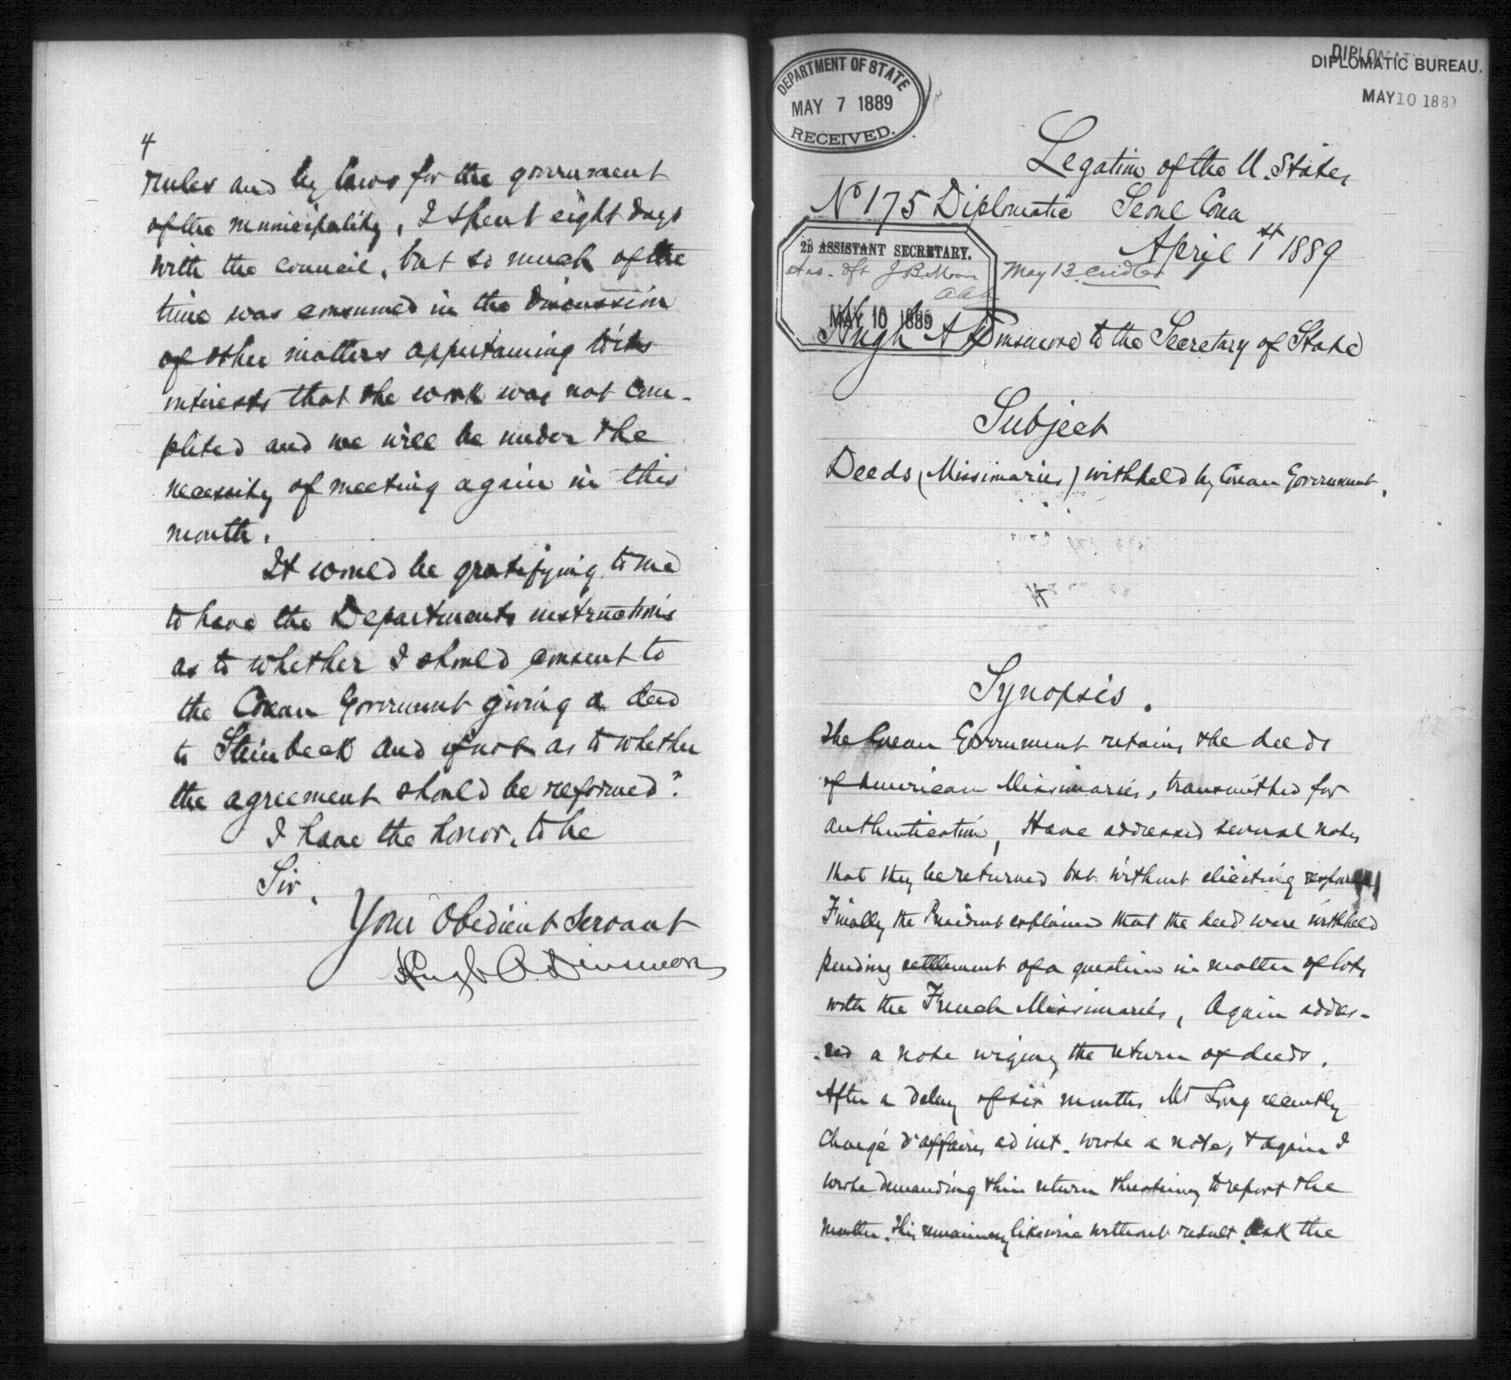 4
rules and by laws for the government
of the municipality, I spent eight days
with the council, but so much of the
time was consumed in the discussion
of other matters appertaining to its
interests that the work was not com-
pleted and we will be under the
necessity of meeting again in this
month.
It would be gratifying to me
to have the Departments instructions
as to whether I should consent to
the Corean Government giving a deed
to Steinbeck and if not as to whether
the agreement should be reformed?
I have the honor, to be
Sir,
Your Obedient Servant
Hugh A. Dinsmore
DEPARTMENT OF STATE
MAY 7 1889
RECEIVED.
DIPLOMATIC BUREAU.
MAY 10 1889
Legation of the U. States,
No 175 Diplomatic Seoul Corea
April 1st 1889
2D ASSISTANT SECRETARY.
J B Moore
May 13
MAY 10 1889
Hugh A Dinsmore to the Secretary of State
Subject
Deeds (Missionaries) withheld by Corean Government.
Synopsis.
The Corean Government retains the deeds
of American Missionaries, transmitted for
authentication, Have addressed several notes
that they be returned but without eliciting
Finally the President explained that the deed were withheld
pending settlement of a question in matter of lots
with the French Missionaries, Again addres-
sed a note urging the return of deeds.
After a delay of six months Mr Long recently
Chargé d'affaires ad int. wrote a note, & again I
wrote demanding their return threatening to report the
matter. This remaining likewise without result. Ask the